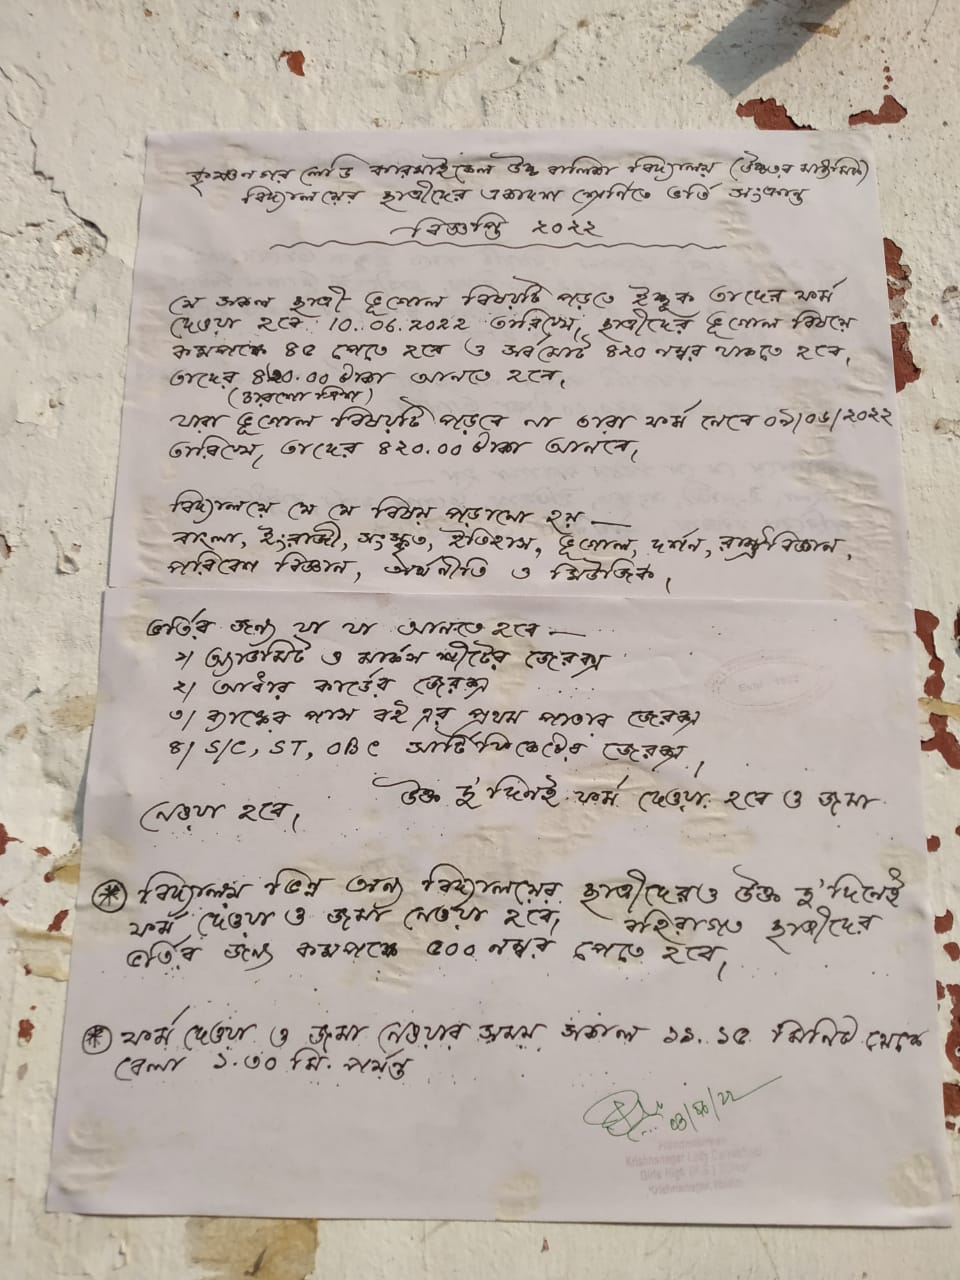 কৃষ্ণনগর লেডি কারমাইকেল উচ্চ বালিকা বিদ্যালয় (উচ্চতর মাধ্যমিক)
বিদ্যালয়ের ছাত্রীদের একাদশ শ্রেনিতে ভর্তি সংক্রান্ত
বিজ্ঞপ্তি ২০২২
যে সকল ছাত্রী ভূগোল বিষয়টি পড়তে ইচ্ছুক তাদের ফর্ম
দেওয়া হবে 10.06.2022 তারিখে, ছাত্রীদের ভূগোল বিষয়ে
কমপক্ষে ৪৫ পেতে হবে ও সর্বমোট ৪২০ নম্বর থাকতে হবে,
তাদের ৪২০.00 টাকা আনতে হবে,
(চারশো বিশ)
যারা ভূগোল বিষয়টি পড়বে না তারা ফর্ম নেবে ০৯/০৬/২০২২
তারিখে, তাদের ৪২০.00 টাকা আনবে,
বিদ্যালয়ে যে যে বিষয় পড়ানো হয় —
বাংলা, ইংরাজী, সংস্কৃত, ইতিহাস, ভূগোল, দর্শন, রাষ্ট্রবিজ্ঞান,
পরিবেশ বিজ্ঞান, অর্থনীতি ও মিউজিক,
ভর্তির জন্য যা যা আনতে হবে —
১) অ্যাডমিট ও মার্কস শীটের জেরক্স
২) আধার কার্ডের জেরক্স
৩) ব্যাঙ্কের পাস বই এর প্রথম পাতার জেরক্স
৪) S/C, ST, OBC সার্টিফিকেটের জেরক্স,
উক্ত দু'দিনই ফর্ম দেওয়া হবে ও জমা
নেওয়া হবে,
* বিদ্যালয় ভিন্ন অন্য বিদ্যালয়ের ছাত্রীদেরও উক্ত দু'দিনেই
ফর্ম দেওয়া ও জমা নেওয়া হবে, বহিরাগত ছাত্রীদের
ভর্তির জন্য কমপক্ষে ৫০০ নম্বর পেতে হবে,
* ফর্ম দেওয়া ও জমা নেওয়ার সময় সকাল ১১.১৫ মিনিট থেকে
বেলা ১.৩০ মি. পর্যন্ত
Krishnanagar Lady Carmichael
Girls High (H.S.) School
Krishnanagar, Nadia